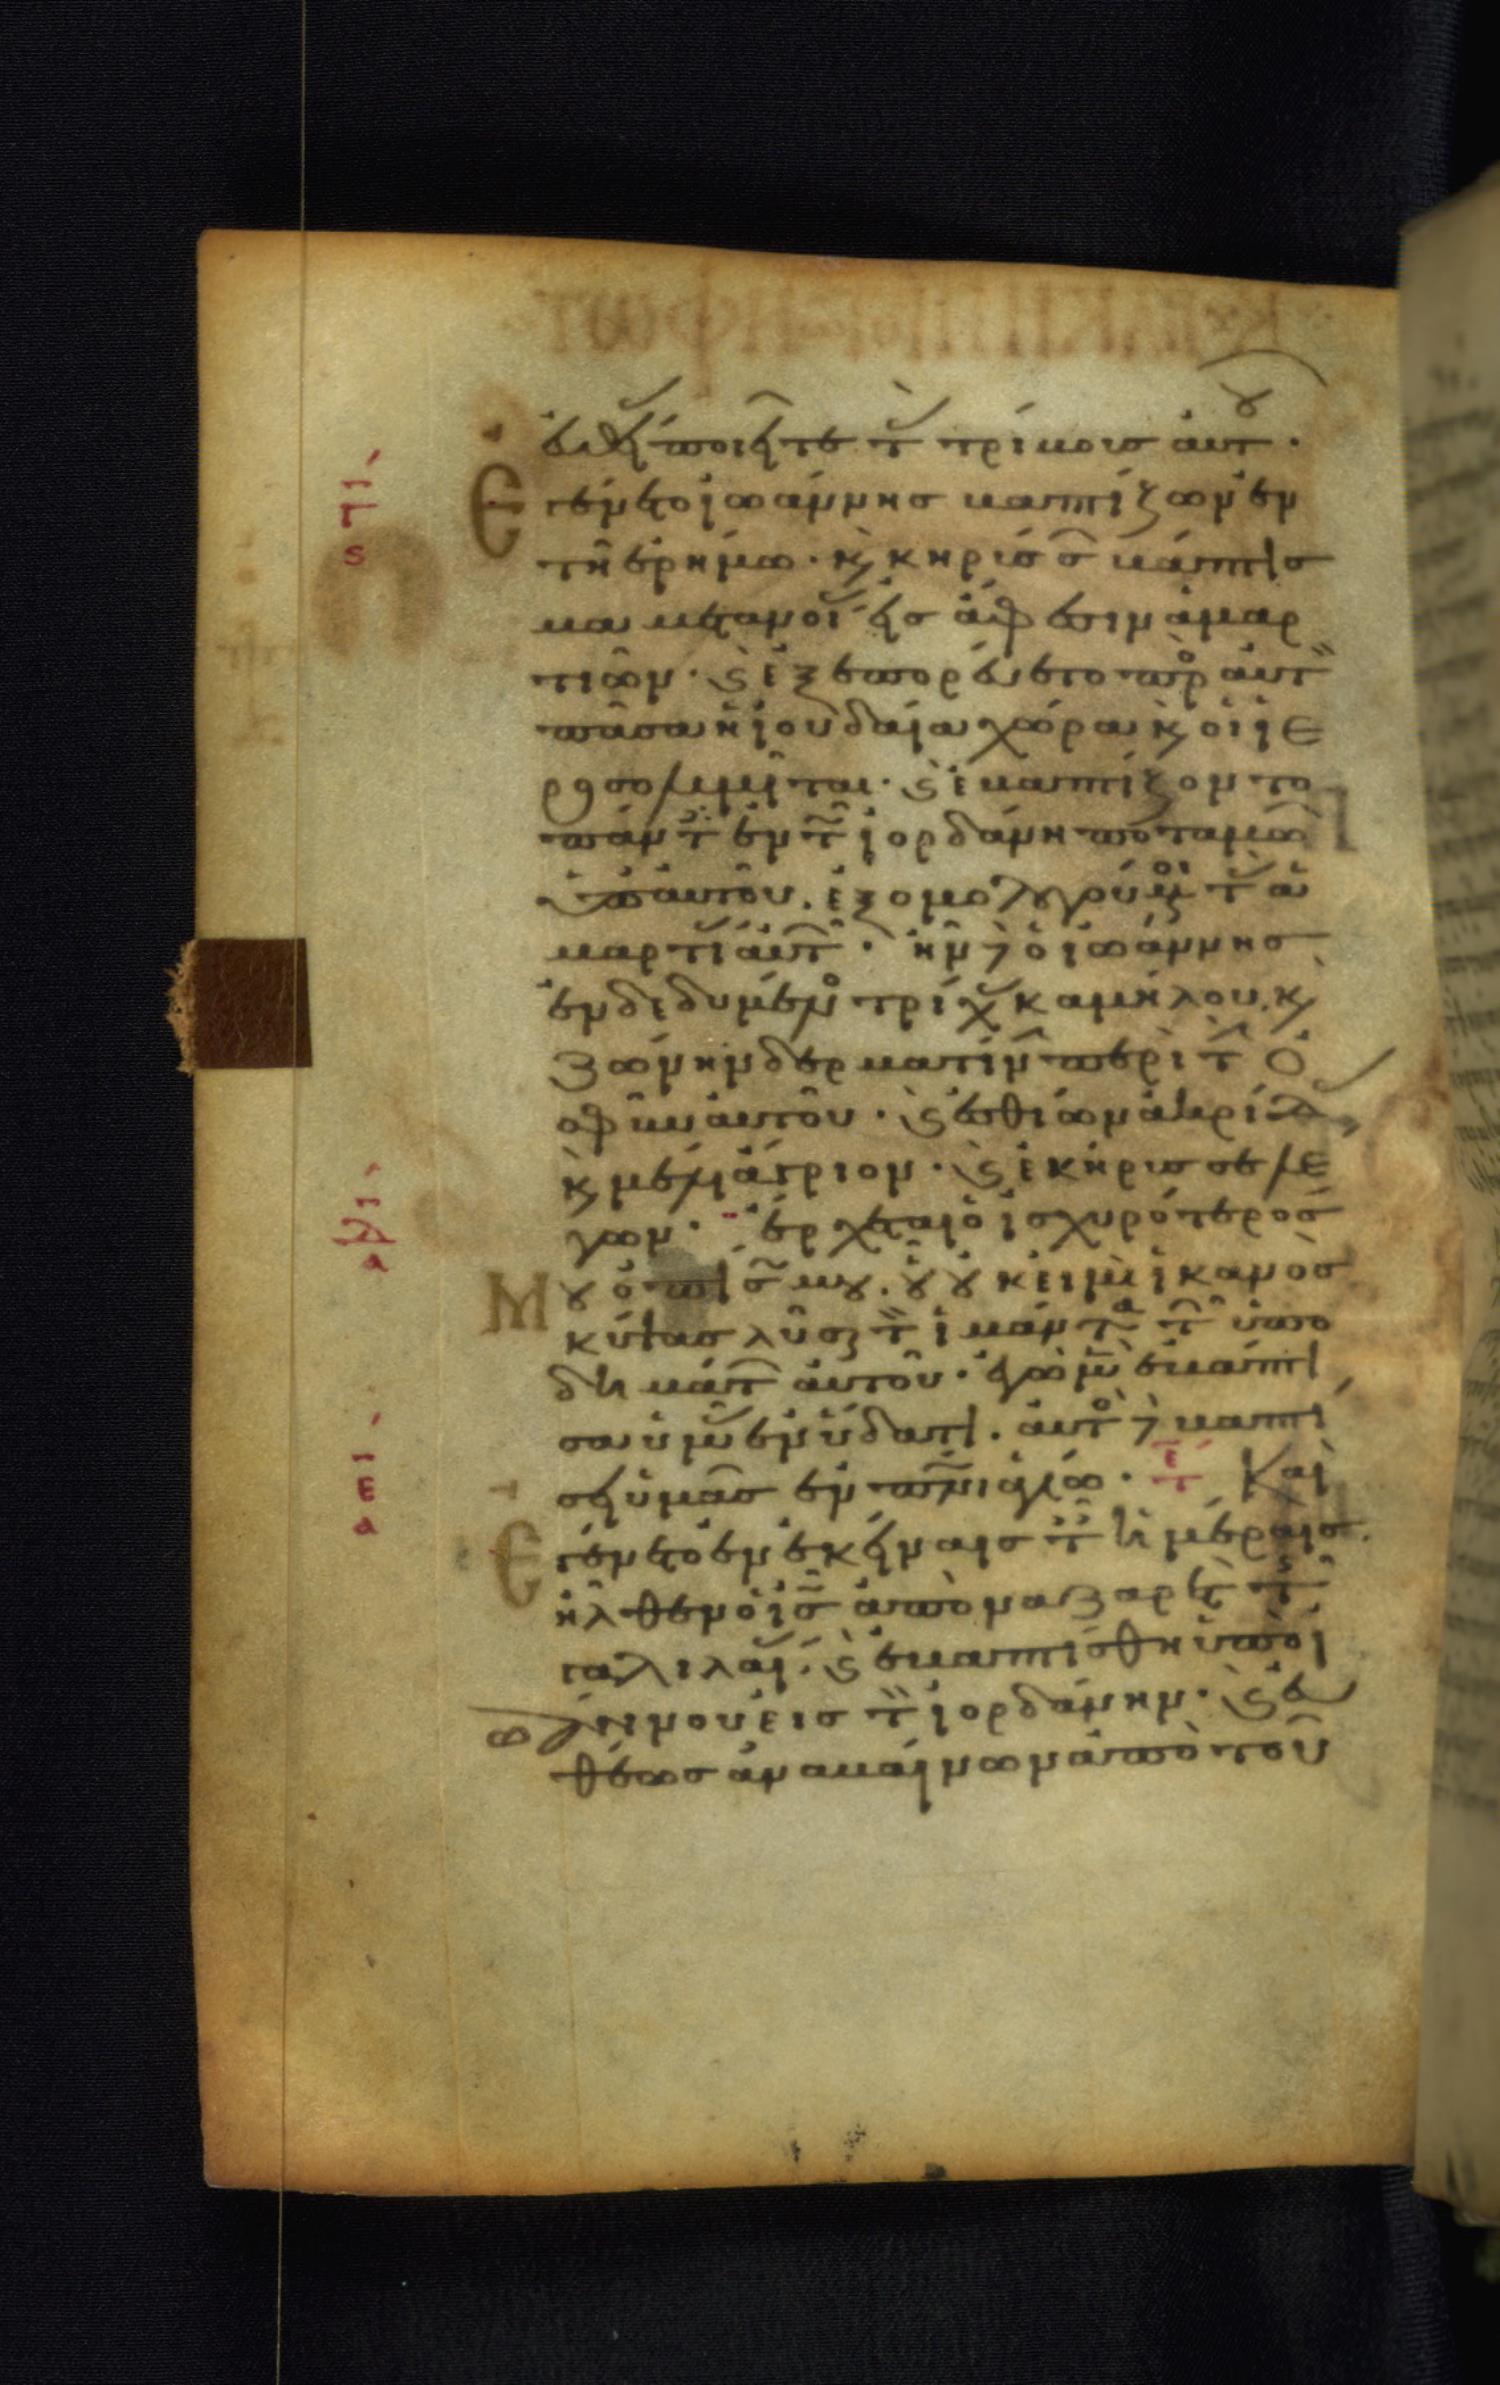 εὐθείας ποιεῖτε τὰς τρίβους αὐτοῦ·
Ἐγένετο ἰωάννης βαπτίζων ἐν
τῆ ἐρήμω· κ κηρύσσων βάπτισ
μα μετανοίας εἰς ἄφεσιν ἁμαρ
τιῶν· κ ἐξεπορεύετο πρὸς αὐτὸν
πᾶσα ἡ ἰουδαία χώρα κ οἱ ἱε
ροσολυμῖται· κ ἐβαπτίζοντο
πάντες ἐν τῶ ἰορδάνη ποταμῶ
ὑπ αὐτοῦ. ἐξομολογούμενοι τὰς ἁ
μαρτίας αὐτῶν· ἦν δὲ ὁ ἰωάννης
ἐνδεδυμένος τρίχας καμήλου. κ
ζώνην δερματίνην περὶ τὴν ὀ
σφὺν αὐτοῦ· κ ἐσθίων ἀκρίδας
κ μέλι ἄγριον· κ ἐκήρυσσε λέ
γων· ἔρχεται ὁ ἰσχυρότερός
Μου ὀπίσω μου. οὗ οὐκ εἰμὶ ἱκανὸς
κύψας λῦσαι τὸν ἱμάντα τῶν ὑπο
δημάτων αὐτοῦ· ἐγὼ μὲν ἐβάπτι
σα ὑμᾶς ἐν ὕδατι. αὐτὸς δὲ βαπτί
σει ὑμᾶς ἐν πνι ἁγίω· Καὶ
Ἐγένετο ἐν ἐκείναις ταῖς ἡμέραις.
ἦλθεν ὁ ις ἀπὸ ναζαρὲτ τῆς
γαλιλαίας. κ ἐβαπτίσθη ὑπὸ ἰ
ωάννου εἰς τὸν ἰορδάνην· κ εὐ
θέως ἀναβαίνων ἀπὸ τοῦ